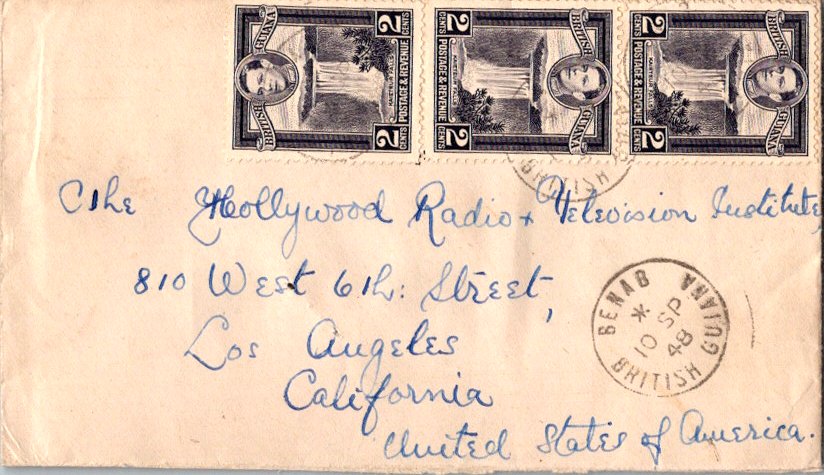 BRITISH GUIANA 2 CENTS 2 CENTS POSTAGE & REVENUE KAIETEUR FALLS
BRITISH GUIANA 2 CENTS 2 CENTS POSTAGE & REVENUE KAIETEUR FALLS
BRITISH GUIANA 2 CENTS 2 CENTS POSTAGE & REVENUE KAIETEUR FALLS
BRITISH
The Hollywood Radio + Television Institute,
810 West 6th: Street,
Los Angeles
California
United States of America.
BENAB
*
10 SP
48
BRITISH GUIANA